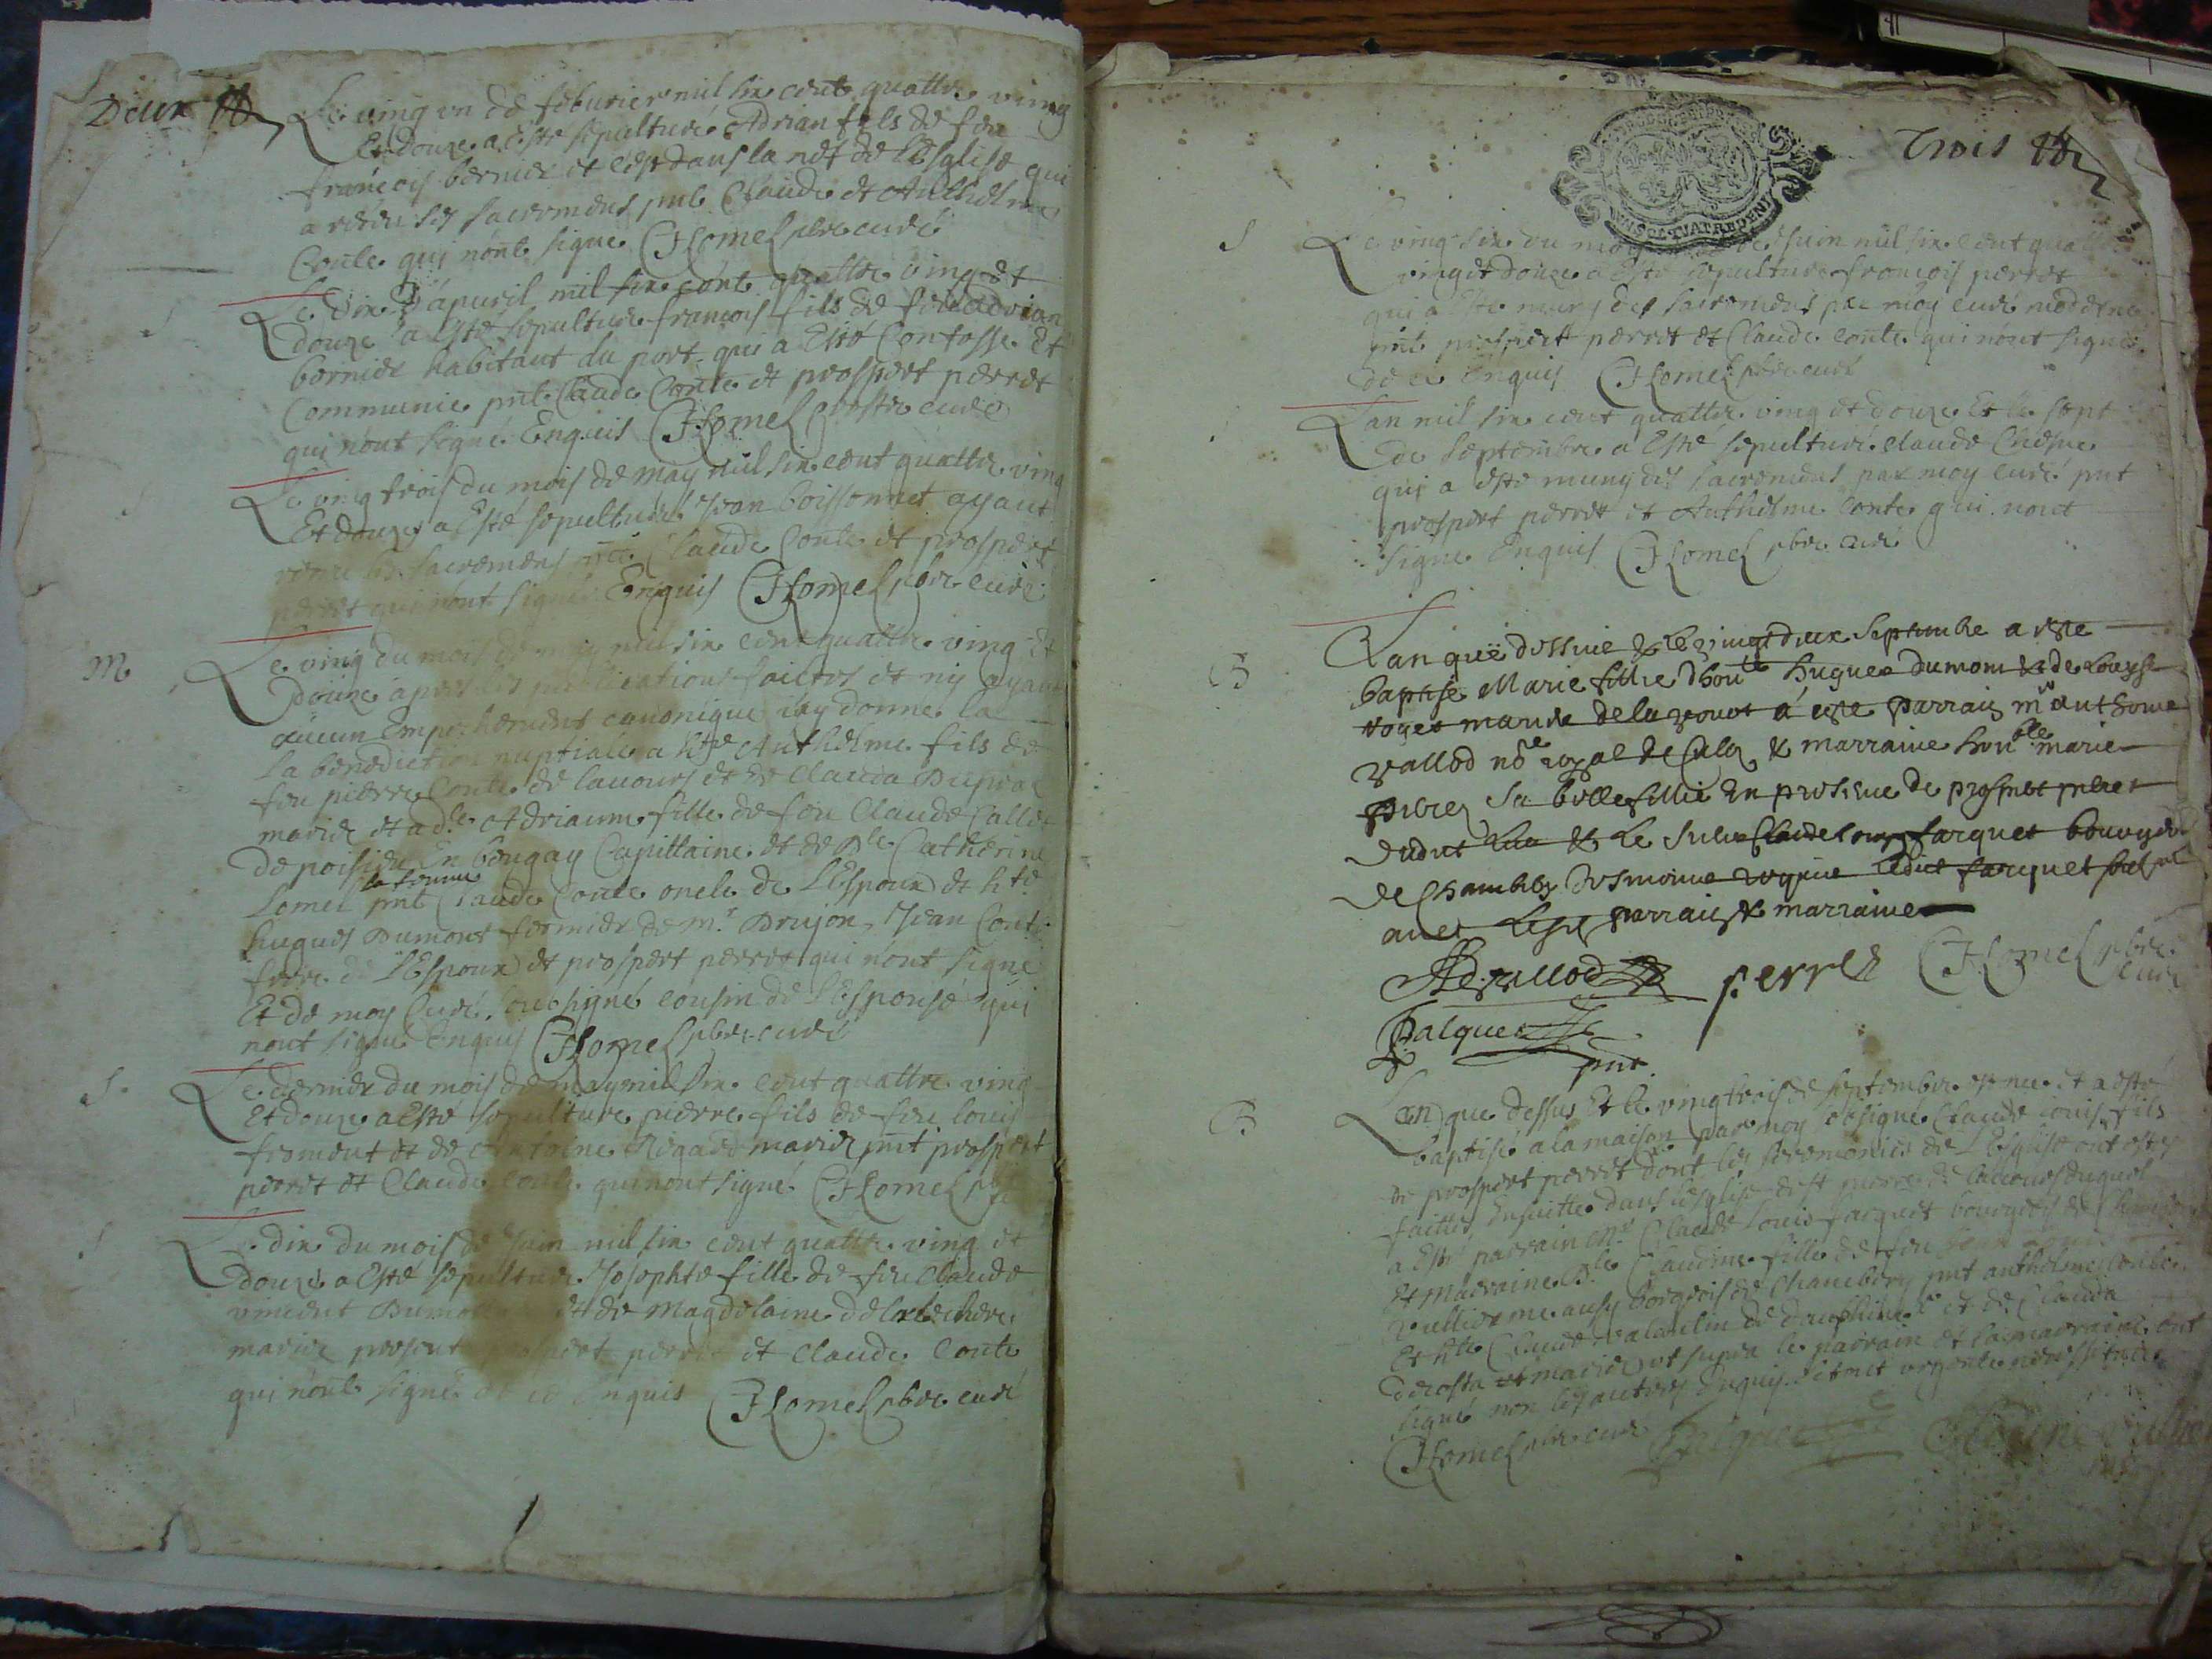 Deux
Le ving un de feburier mil six cent quattre ving
Et douze a este sepulturé Adrian fils de feu
françois bernier et c'est dans la nef de l'Esglise qui
a receu les sacremens pnt Claude et Anthelme
Conte qui n'ont signe CHomel pbre curé
Le dix d'apuril mil six cent quattre ving et
douze a esté sepulturé françois fils de feu adrian
bernier habitant du port qui a Esté Confessé Et
Communié pnt Claude Conte et prospert perret
qui n'ont signé Enquis CHomel prestre curé
S
Le ving trois du mois de may mil six cent quattre ving
Et douze a Esté sepulturé Jean boissonnet ayant
receu les sacremens pnt Claude Conte et prospert
perret qui n'ont signé Enquis CHomel pbre curé
M
Le ving du mois de may mil six cent quattre ving et
douze apres les publications faictes et ny ayant
aucun Empechement canonique jay donné la
la benediction nuptiale a hble Anthelme fils de
feu pierre Conte de lauours et de Clauda Duprat
mariez et a dle Adrianne fille de feu Claude Callet
De poisieu En bougay Capittaine et de Dle Catherine
la femme
Lomel pnt Claude Conte oncle de L'Espoux et hble
hugues Dumont fermier de mr Drujon, Jean Conte
frere de L'Espoux et prospert perret qui n'ont signé
Et de moy Curé sousigné cousin de L'Espouse qui
nont signé Enquis CHomel pbre curé
S
Le dernier du mois de may mil six cent quattre ving
Et douze a Esté sepulturé pierre fils de feu louis
froment et de Antoine Regard mariez pnt prospert
perret et Claude Conte qui nont signé CHomel pbre
S
Le dix du mois de juin mil six cent quattre ving et
douze a Esté sepulturé Josephte fille de feu Claude
vincent et de Magdelaine delalechere
mariez present prospert perret et Claude Conte
qui n'ont signé de ce Enquis CHomel pbre curé
Trois
S
Le ving six du mois de juin mil six cent quattre
ving et douze a esté sepulturé françois perret
qui a Esté muny des sacremens par moy curé moderne
pnt prospert perret et Claude Conte qui n'ont signé
de ce Enquis CHomel pbre curé
L'an mil six cent quattre ving et douze Et le sept
De Septembre a Esté sepulturé Claude Chesne
qui a esté muny des sacremens par moy curé pnt
prospert perret et Anthelme Conte qui nont
signé Enquis CHomel pbre curé
B
L'an que dessus & le vingt deux Septembre a este
baptisé Marie fillie dhonle hugues dumont & de Louyse
voges a este Parrain mre anthoine
vallod nore royal de & marraine honble marie
sa belle fillie En presence de prospert perret
& Le sieur Claude Louys farquet bourgeois
de Chambery farquet signé
auec parrain & marraine
vallod perret CHomel pbre curé
falquet
pnt
B
L'an que dessus Et le ving trois de septembre est né et a esté
baptisé a la maison par moy sousigné Claude louis fils
de prospert perret dont les ceremonies de l'Esglise ont estés
faittes Ensuitte dans lesglise de st pierre de lauours duquel
a Esté parrain mre Claude Louis farquet bourgeois de Chambery
Et marraine Dle Claudine fille de feu
vullierme aussy borgeois de Chambery pnt anthelme Conte
Et hble Claude et de Clauda
derosta mariez ut supra le parrain et la marraine ont
signé non les autres Enquis
CHomel pbre curé falquet